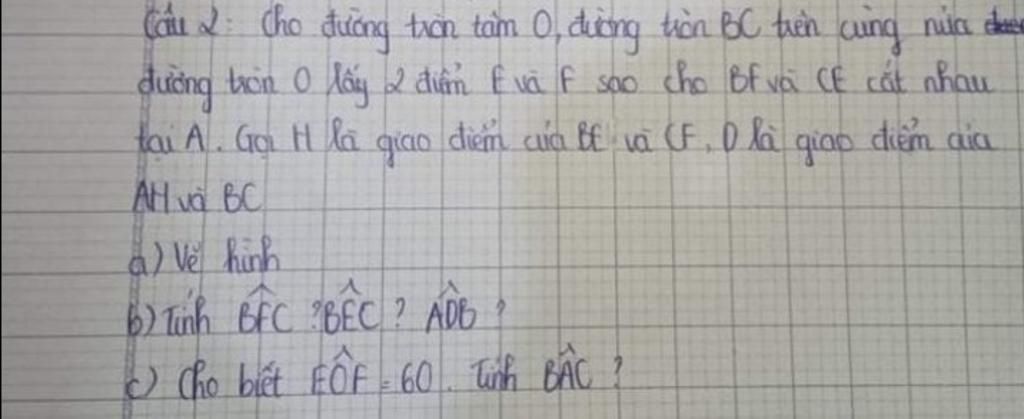 Câu 2: Cho đường tròn tâm O, đường tròn BC trên cùng nửa
đường tròn O lấy 2 điểm E và F sao cho BF và CE cắt nhau
tại A. Gọi H là giao điểm của BE và CF, D là giao điểm của
AH và BC
a) Vẽ hình
b) Tính BF̂C ? BÊC ? AD̂B ?
c) Cho biết EÔF = 60. Tính BÂC ?